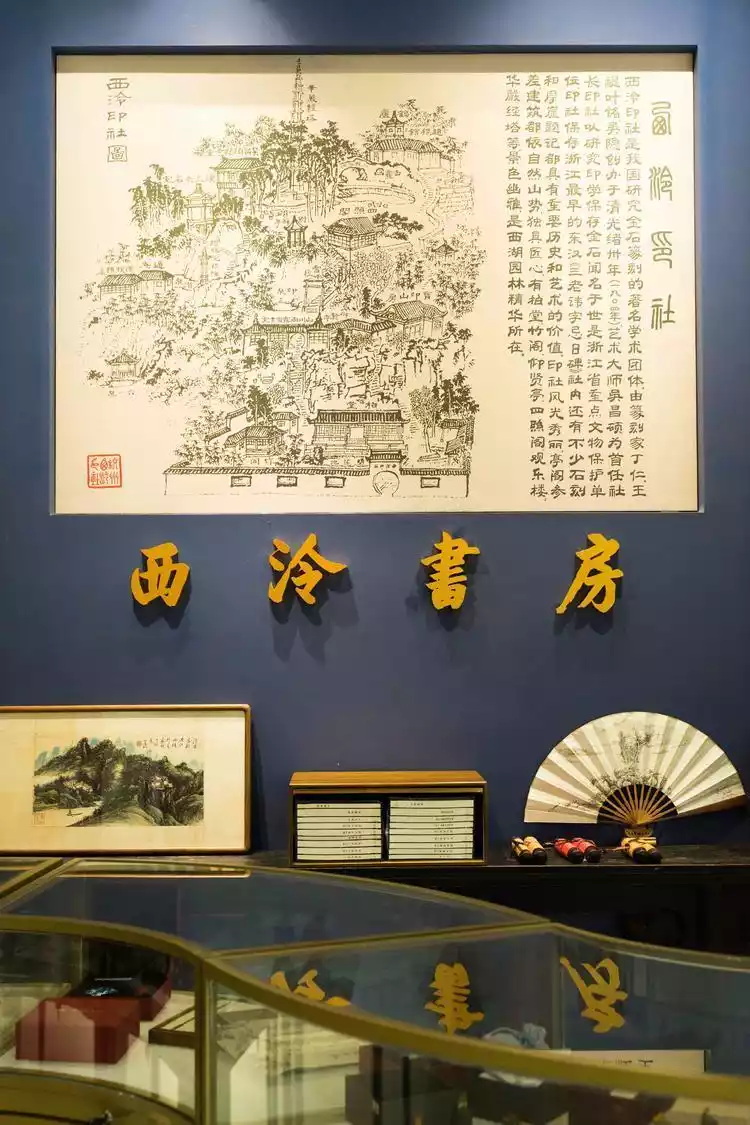 西泠印社圖
華嚴經塔
四照閣
西泠印社
西泠印社是我国研究金石篆刻的著名学术团体.由篆刻家丁仁.王
禔叶铭吴隐创办于清光绪卅年(一九〇四年)艺术大师吴昌硕为首任社
长印社以研究印学保存金石闻名于世是浙江省重点文物保护单
位印社保存浙江最早的东汉三老讳字忌日碑社内还有不少石刻
和摩崖题记都具有重要历史和艺术的价值印社风光秀丽.亭阁参
差建筑都依自然山势独具匠心有柏堂竹阁仰贤亭四照阁观乐楼
华严经塔等景色幽雅是西湖园林精华所在.
西泠書房